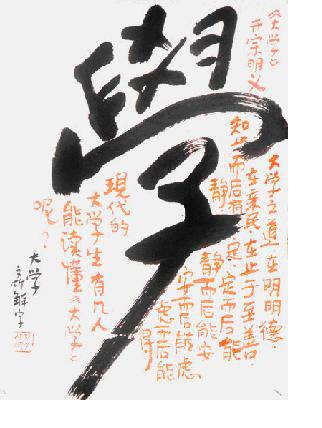 學
《大学》
开宗明义
大学之道·在明明德·
在亲民·在止于至善·
知止而后有定·定而后能
静·静而后能安
安而后能虑
虑而后能
得
現代的
大学生有几人
能读懂《大学》
呢？
大学
新解字